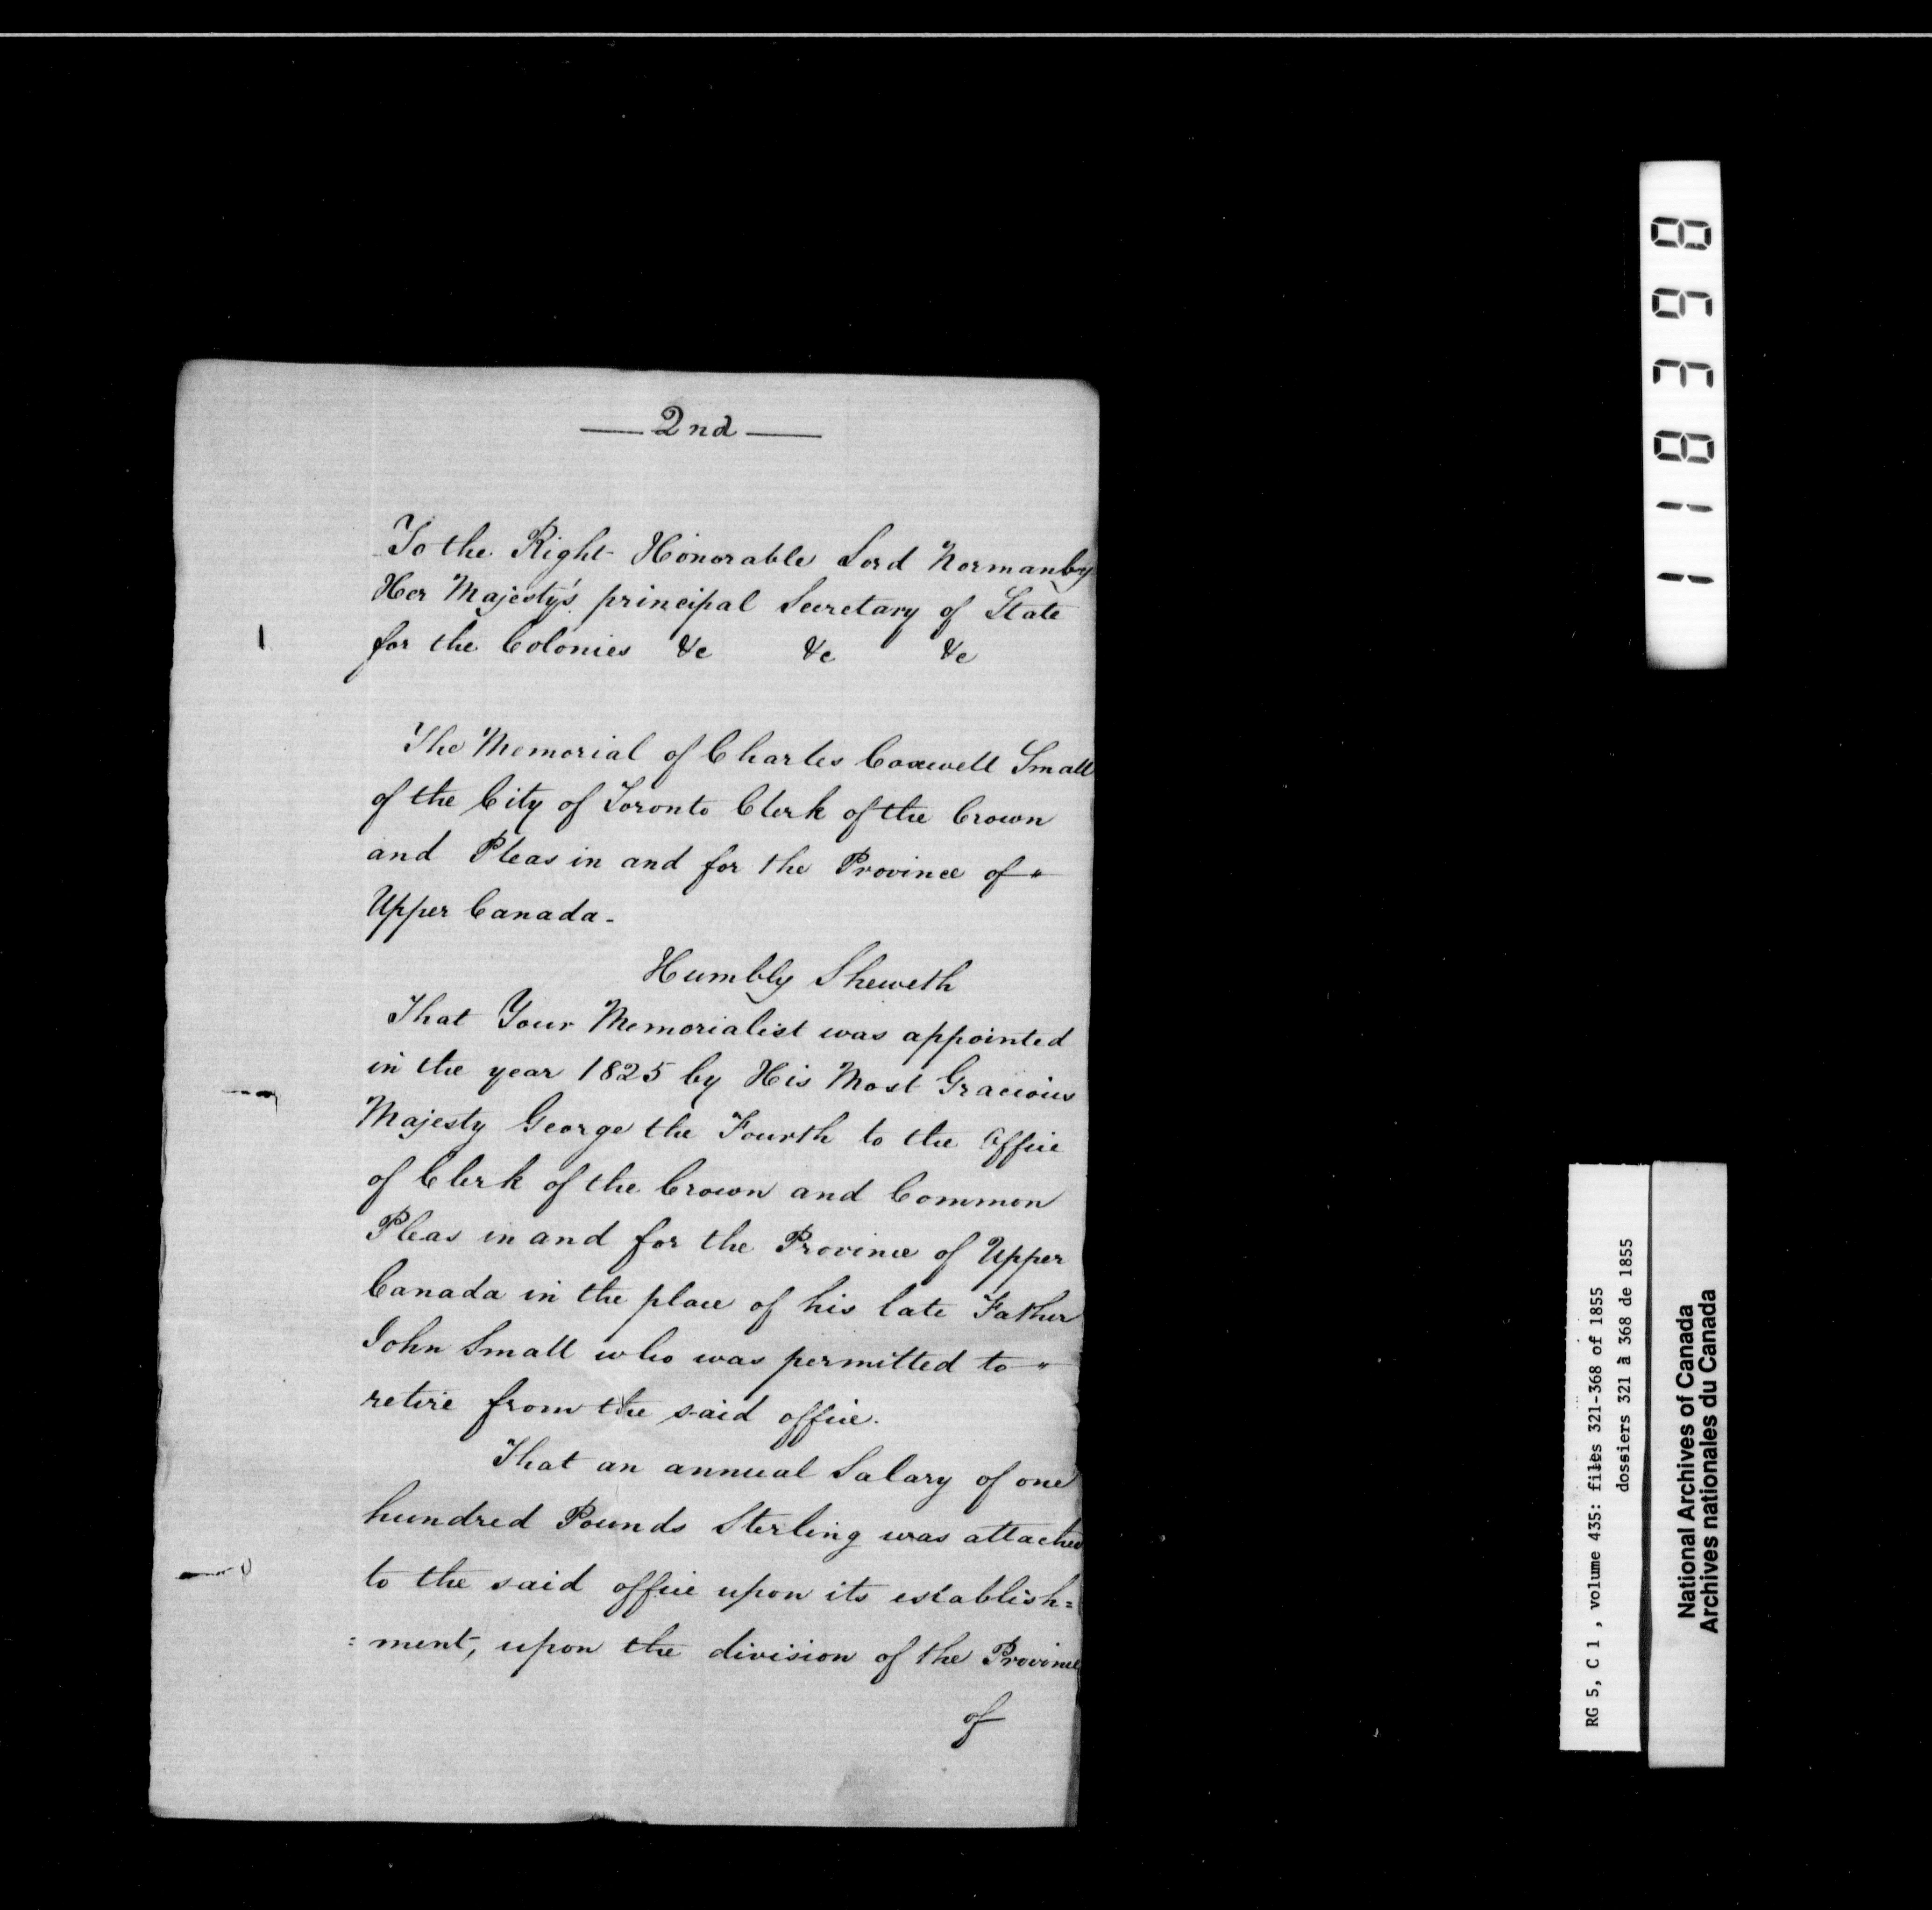 — 2nd —
To the Right Honorable Lord Normanby
Her Majesty's principal Secretary of State
for the Colonies &c &c &c
The Memorial of Charles Coxwell Small
of the City of Toronto Clerk of the Crown
and Pleas in and for the Province of "
Upper Canada -
Humbly Sheweth
That Your Memorialist was appointed
in the year 1825 by His Most Gracious
Majesty George the Fourth to the Office
of Clerk of the Crown and Common
Pleas in and for the Province of Upper
Canada in the place of his late Father
John Small who was permitted to "
retire from the said office.
That an annual Salary of one
hundred Pounds Sterling was attached
to the said office upon its establish=
=ment, upon the division of the Province
of
118398
RG 5, C 1 , volume 435: files 321-368 of 1855
dossiers 321 à 368 de 1855
National Archives of Canada
Archives nationales du Canada